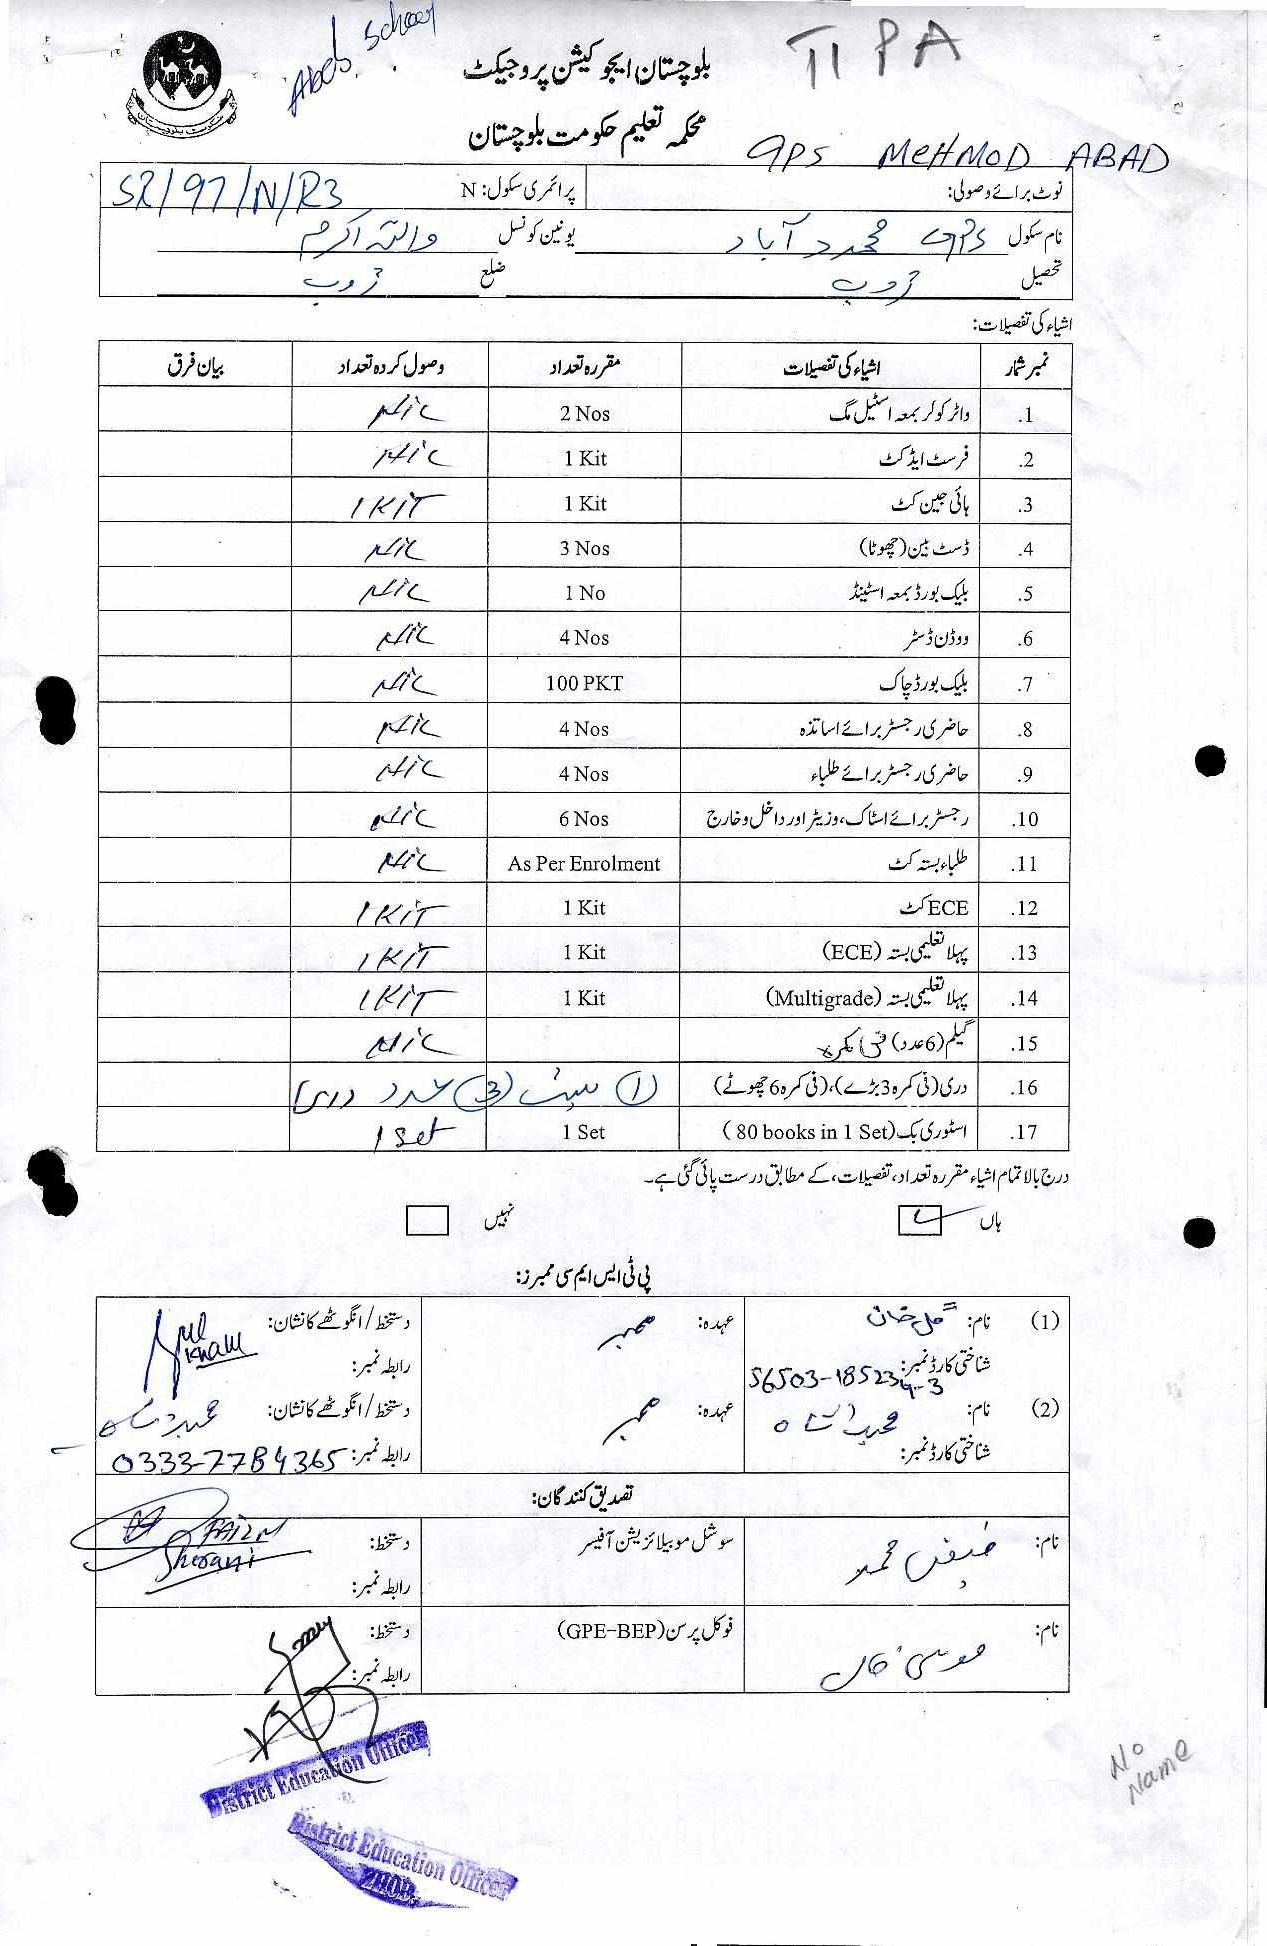 Abad School
TIPA
بلوچستان ایجوکیشن پروجیکٹ
محکمہ تعلیم حکومت بلوچستان
GPS MEHMOD ABAD
نوٹ برائے وصولی: پرائمری سکول: N SR/97/N/R3
نام سکول GPS محمود آباد یونین کونسل والہ اکرم
تحصیل ژوب ضلع ژوب
اشیاء کی تفصیلات:
نمبر شمار اشیاء کی تفصیلات مقررہ تعداد وصول کردہ تعداد بیان فرق
1. واٹر کولر بمعہ اسٹیل مگ 2 Nos Nil
2. فرسٹ ایڈ کٹ 1 Kit Nil
3. ہائی جین کٹ 1 Kit 1 KIT
4. ڈسٹ بین (چھوٹا) 3 Nos Nil
5. بلیک بورڈ بمعہ اسٹینڈ 1 No Nil
6. ووڈن ڈسٹر 4 Nos Nil
7. بلیک بورڈ چاک 100 PKT Nil
8. حاضری رجسٹر برائے اساتذہ 4 Nos Nil
9. حاضری رجسٹر برائے طلباء 4 Nos Nil
10. رجسٹر برائے اسٹاک، وزیٹر اور داخل و خارج 6 Nos Nil
11. طلباء بستہ کٹ As Per Enrolment Nil
12. ECE کٹ 1 Kit 1 KIT
13. پہلا تعلیمی بستہ (ECE) 1 Kit 1 KIT
14. پہلا تعلیمی بستہ (Multigrade) 1 Kit 1 KIT
15. گیلم (6 عدد) فی کمرہ Nil
16. دری (فی کمرہ 3 بڑے)، (فی کمرہ 6 چھوٹے) (1) سیٹ (3) عدد دری
17. اسٹوری بک (80 books in 1 Set) 1 Set 1 Set
درج بالا تمام اشیاء مقررہ تعداد، تفصیلات، کے مطابق درست پائی گئی ہے۔
ہاں نہیں
پی ٹی ایس ایم سی ممبرز:
(1) نام: گل خان عہدہ: ممبر دستخط / انگوٹھے کا نشان: Gul Khan
شناختی کارڈ نمبر: 56503-185234-3 رابطہ نمبر:
(2) نام: عہدہ: ممبر دستخط / انگوٹھے کا نشان:
شناختی کارڈ نمبر: رابطہ نمبر: 0333-7784365
تصدیق کنندگان:
نام: فیض محمد سوشل موبیلائزیشن آفیسر دستخط: FAIZM Sherani
رابطہ نمبر:
نام: موسیٰ خان فوکل پرسن (GPE-BEP) دستخط:
رابطہ نمبر:
District Education Officer
District Education Officer
ZHOB
No Name